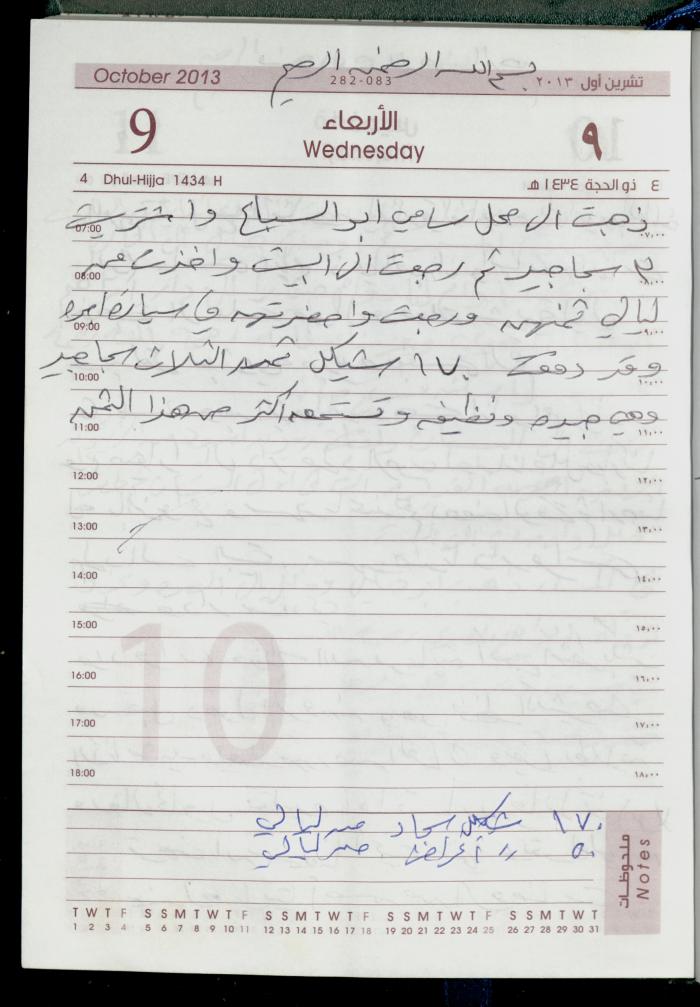 بسم الله الرحمن الرحيم
October 2013
282-083
تشرين أول ٢٠١٣
9
الأربعاء
Wednesday
٩
4 Dhul-Hijja 1434 H
٤ ذو الحجة ١٤٣٤ هـ
ذهبت الى محل سامي ابو السباع واشتريت
07:00 ٠٧,٠٠
٣ سجاجيد ثم رجعت الى البيت واخذت من
08:00 ٠٨,٠٠
ليالي ثمنهن ورجعت واحضرتهن في سيارة
09:00 ٠٩,٠٠
وقد دفعت ١٧٠ شيكل ثمن الثلاث سجاجيد
10:00 ١٠,٠٠
وهي جيده ونظيفه وتستحق اكثر من هذا الثمن
11:00 ١١,٠٠
12:00 ١٢,٠٠
13:00 ١٣,٠٠
14:00 ١٤,٠٠
15:00 ١٥,٠٠
16:00 ١٦,٠٠
17:00 ١٧,٠٠
18:00 ١٨,٠٠
١٧٠ شيكل سجاد من ليالي
٥٠ // أغراض من ليالي
ملحوظات
Notes
T W T F S S M T W T F S S M T W T F S S M T W T F S S M T W T
1 2 3 4 5 6 7 8 9 10 11 12 13 14 15 16 17 18 19 20 21 22 23 24 25 26 27 28 29 30 31